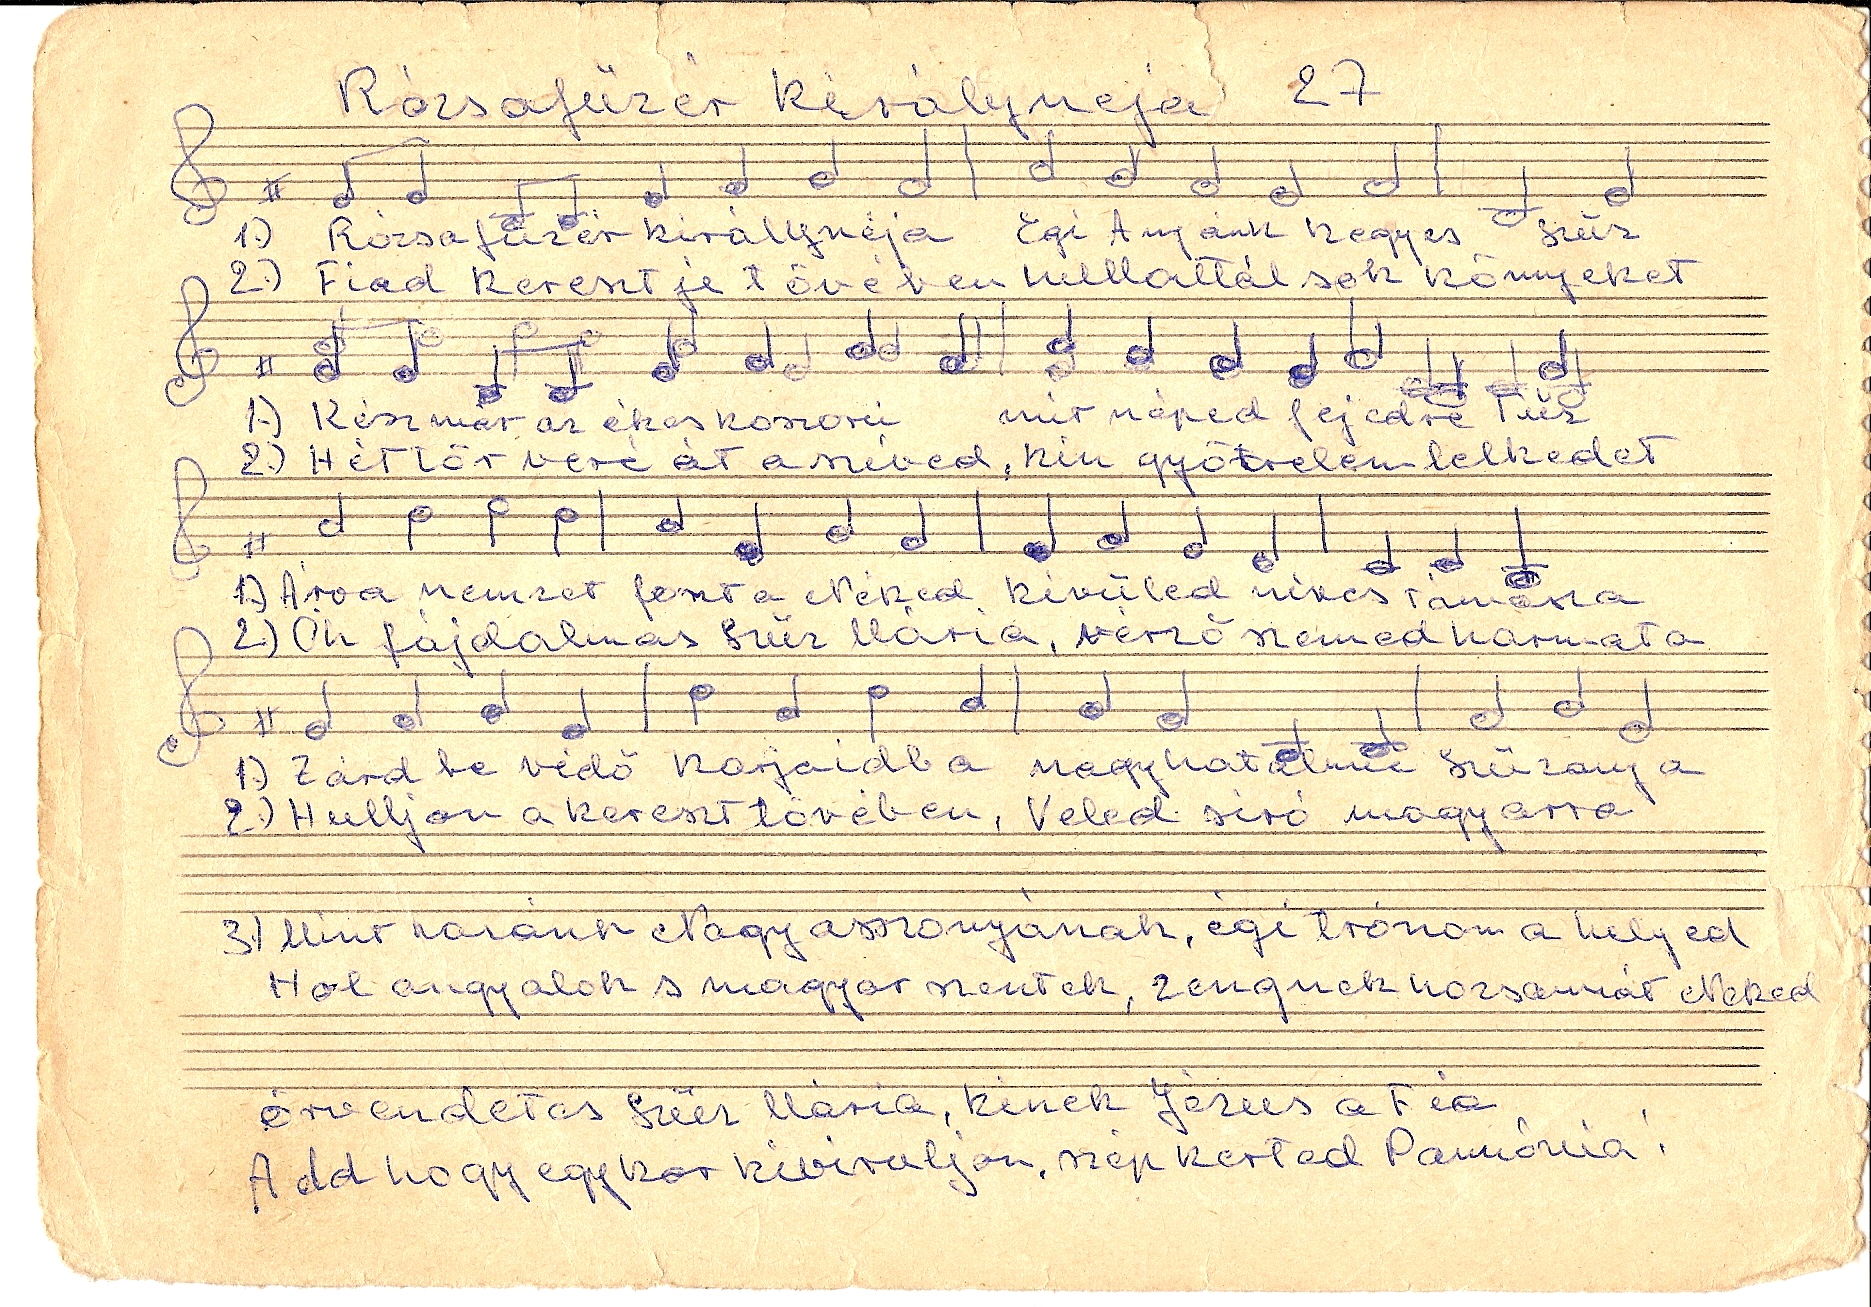 Rózsafüzér Királynéja 27
1.) Rózsafüzér királynéja Égi Anyánk kegyes Szűz
2.) Fiad keresztje tövében hullattál sok könnyeket
1.) Kész már az ékes koszorú mit néped fejedre tűz
2.) Hét tőr veré át a szíved, kín gyötrelem lelkedet
1.) Árva nemzet fonta Néked kívüled nincs támasza
2.) Óh fájdalmas Szűz Mária, vérző szemed harmata
1.) Zárd be védő karjaidba nagyhatalmú Szűzanya
2.) Hulljon a kereszt tövében, Veled síró magyarra
3.) Mint hazánk Nagyasszonyának, égi trónom a helyed
Hol angyalok s magyar szentek, zengnek hozsannát Neked
örvendetes Szűz Mária, kinek Jézus a Fia
Add hogy egykor kiviruljon, szép kerted Pannónia!